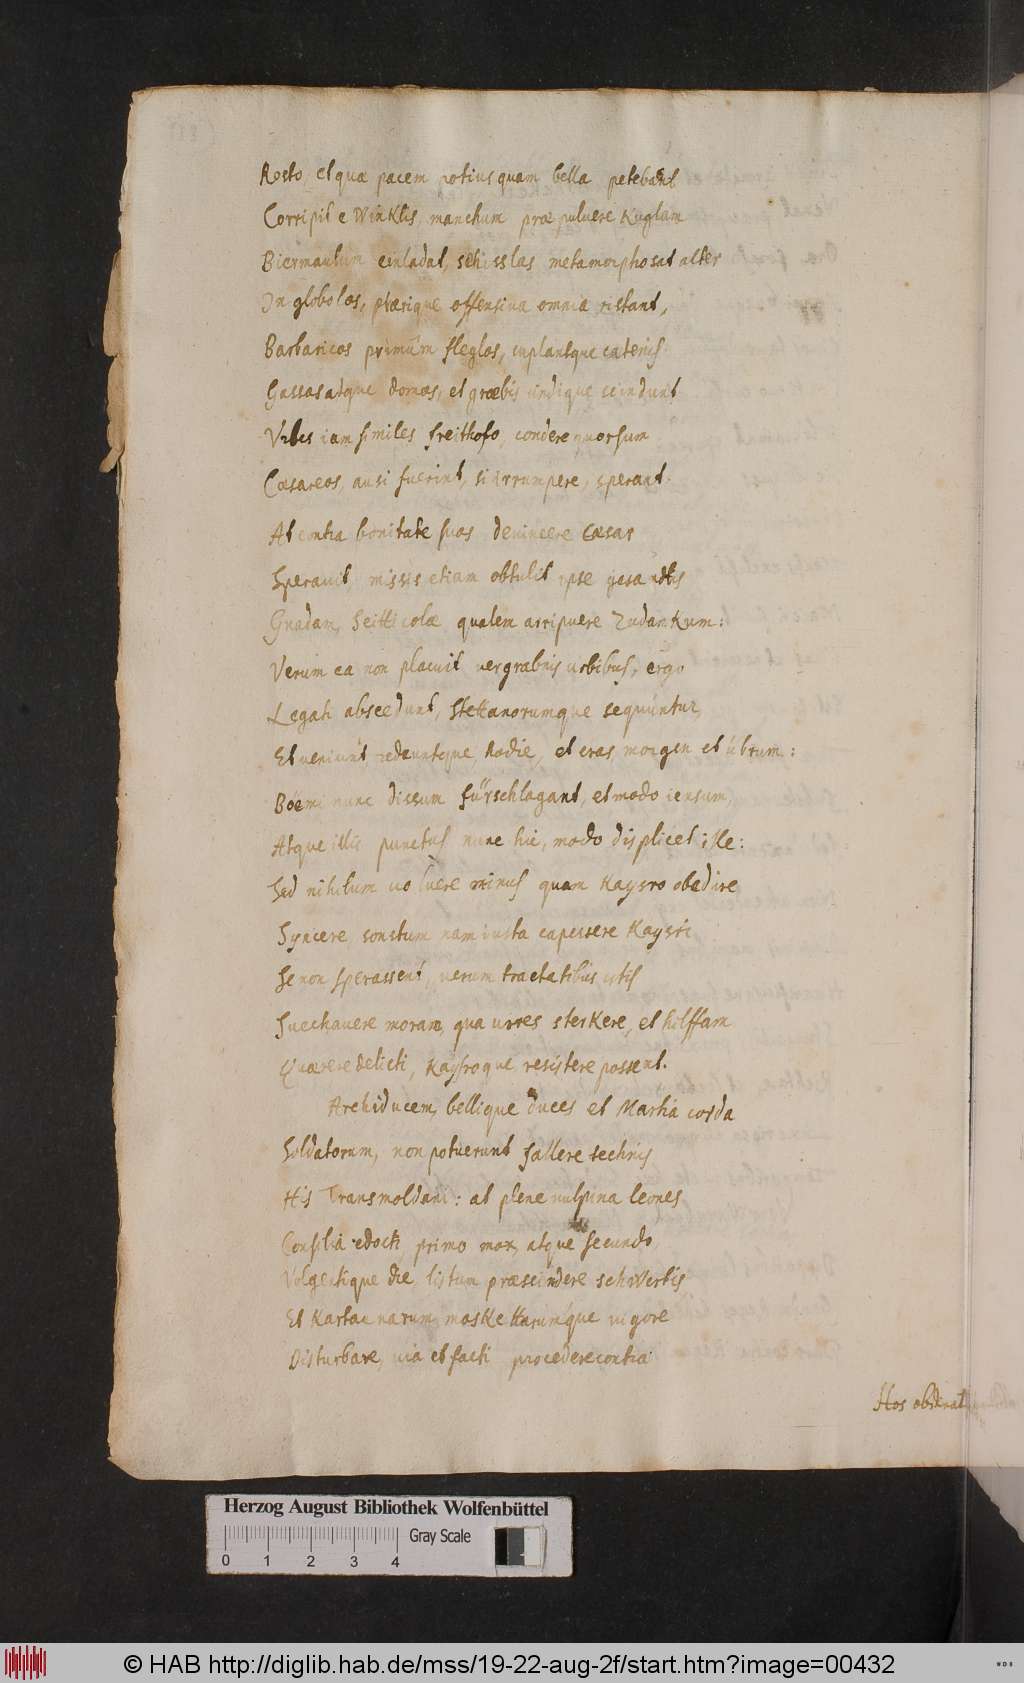 Rosto, et quæ pacem potius quam bella petebant
Corripit e Winklis, manchum præ pulvere Kuglam
Biermaulum einladat, schisslas metamorphosat alter
In globolos, plærique offensiva omnia ristant,
Barbaricos primùm fleglos,
Gassas atque domos, et græbis undique scindunt
Vrbes iam similes freithofo, condere quorsum
Cæsareos, ausi fuerint, si irrumpere, sperant.
At contra bonitate suos devincere Cæsar
Speravit missis etiam obtulit ipse gesandtis
Gnadam, qualem arripuere Zudankum:
Verum ea non placuit vergrabnis urbibus, ergo
Legati abscedunt, Stettanorumque sequuntur,
Et veniunt redeuntque Rodie, et cras, morgen et ubrum:
Böemi nunc dissum fürschlagant, et modo iensum
Atque illis punctus nunc hic, modo displicet ille:
Sed nihilum voluere minus quam Kaysro obedire
Syncere, sonstum nam iusta capessere Kaysri
Se non sperassent, verum tractatibus istis
Suechavere moram, qua vires sterkere, et hilffam
Quærere delicti, Kaysroque resistere possent.
Archiducem, bellique duces et Martia corda
Soldatorum, non potuerunt fallere technis
His Transmoldani: at plene vulpina leones
Consilia edocti primo mox, atque secundo
Volgentique die listum præscindere schwertis
Et Kartaunarum, moskettarumque vigore
Disturbare, via et facti procedere contra
Hos obdurat
Herzog August Bibliothek Wolfenbüttel
Gray Scale
0 1 2 3 4
© HAB http://diglib.hab.de/mss/19-22-aug-2f/start.htm?image=00432